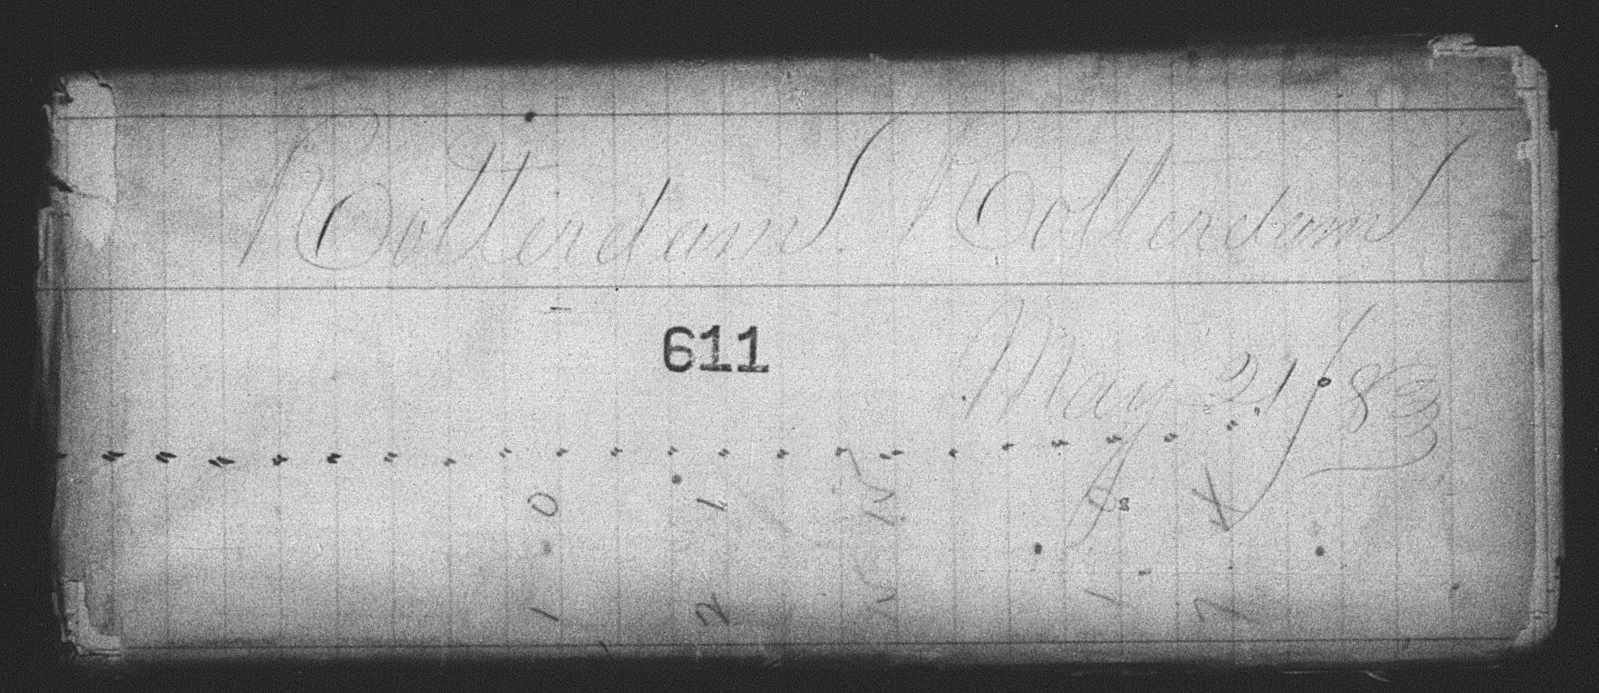 Rotterdam. Rotterdam
611
May 21/83